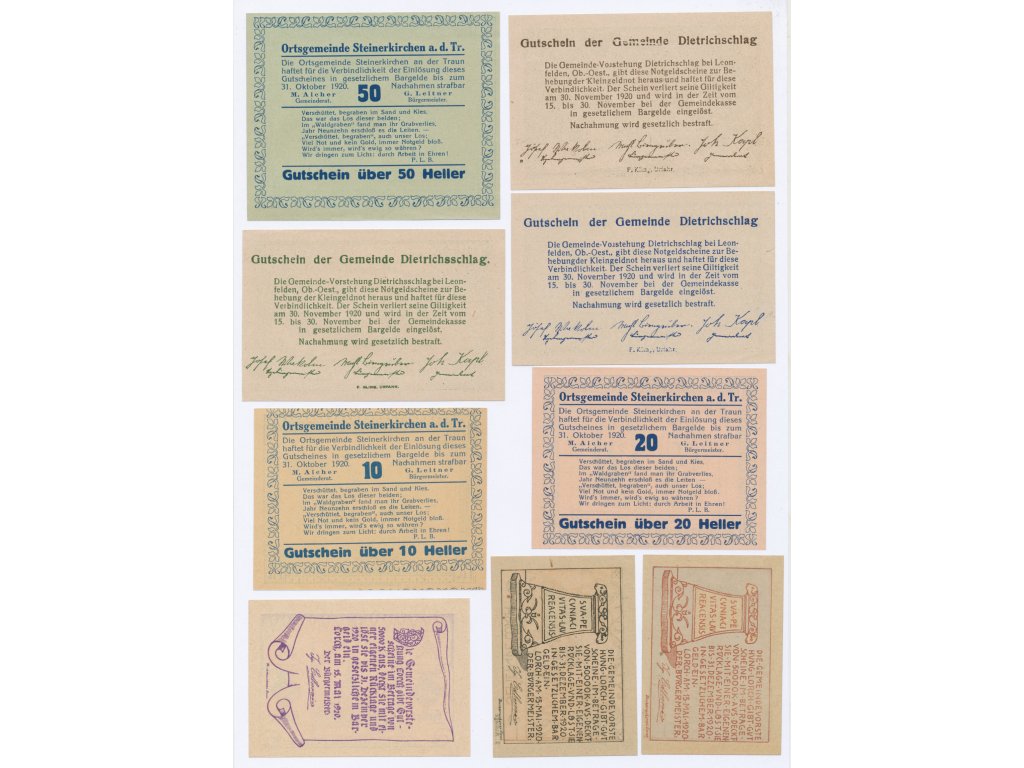 Ortsgemeinde Steinerkirchen a. d. Tr.
Die Ortsgemeinde Steinerkirchen an der Traun
haftet für die Verbindlichkeit der Einlösung dieses
Gutscheines in gesetzlichem Bargelde bis zum
31. Oktober 1920. 50 Nachahmen strafbar
M. Aicher G. Leitner
Gemeinderat. Bürgermeister.
Verschüttet, begraben im Sand und Kies.
Das war das Los dieser beiden;
Im „Waldgraben“ fand man ihr Grabverlies.
Jahr Neunzehn erschloß es die Leiten. —
„Verschüttet, begraben“, auch unser Los;
Viel Not und kein Gold, immer Notgeld bloß.
Wird's immer, wird's ewig so währen?
Wir dringen zum Licht: durch Arbeit in Ehren!
P. L. B.
Gutschein über 50 Heller
Gutschein der Gemeinde Dietrichschlag
Die Gemeinde-Vorstehung Dietrichschlag bei Leon-
felden, Ob.-Oest., gibt diese Notgeldscheine zur Be-
hebung der Kleingeldnot heraus und haftet für diese
Verbindlichkeit. Der Schein verliert seine Giltigkeit
am 30. November 1920 und wird in der Zeit vom
15. bis 30. November bei der Gemeindekasse
in gesetzlichem Bargelde eingelöst.
Nachahmung wird gesetzlich bestraft.
Joh. Kapl
Gutschein der Gemeinde Dietrichsschlag.
Die Gemeinde-Vorstehung Dietrichsschlag bei Leon-
felden, Ob.-Oest., gibt diese Notgeldscheine zur Be-
hebung der Kleingeldnot heraus und haftet für diese
Verbindlichkeit. Der Schein verliert seine Giltigkeit
am 30. November 1920 und wird in der Zeit vom
15. bis 30. November bei der Gemeindekasse
in gesetzlichem Bargelde eingelöst.
Nachahmung wird gesetzlich bestraft.
Joh. Kapl
Gutschein der Gemeinde Dietrichschlag
Die Gemeinde-Vorstehung Dietrichschlag bei Leon-
felden, Ob.-Oest., gibt diese Notgeldscheine zur Be-
hebung der Kleingeldnot heraus und haftet für diese
Verbindlichkeit. Der Schein verliert seine Giltigkeit
am 30. November 1920 und wird in der Zeit vom
15. bis 30. November bei der Gemeindekasse
in gesetzlichem Bargelde eingelöst.
Nachahmung wird gesetzlich bestraft.
Joh. Kapl
Ortsgemeinde Steinerkirchen a. d. Tr.
Die Ortsgemeinde Steinerkirchen an der Traun
haftet für die Verbindlichkeit der Einlösung dieses
Gutscheines in gesetzlichem Bargelde bis zum
31. Oktober 1920. 10 Nachahmen strafbar
M. Aicher G. Leitner
Gemeinderat. Bürgermeister.
Verschüttet, begraben im Sand und Kies.
Das war das Los dieser beiden;
Im „Waldgraben“ fand man ihr Grabverlies.
Jahr Neunzehn erschloß es die Leiten —
„Verschüttet, begraben“, auch unser Los;
Viel Not und kein Gold, immer Notgeld bloß.
Wird's immer, wird's ewig so währen?
Wir dringen zum Licht: durch Arbeit in Ehren!
P. L. B.
Gutschein über 10 Heller
Ortsgemeinde Steinerkirchen a. d. Tr.
Die Ortsgemeinde Steinerkirchen an der Traun
haftet für die Verbindlichkeit der Einlösung dieses
Gutscheines in gesetzlichem Bargelde bis zum
31. Oktober 1920. 20 Nachahmen strafbar
M. Aicher G. Leitner
Gemeinderat. Bürgermeister.
Verschüttet, begraben im Sand und Kies.
Das war das Los dieser beiden;
Im „Waldgraben“ fand man ihr Grabverlies,
Jahr Neunzehn erschloß es die Leiten —
„Verschüttet, begraben“, auch unser Los;
Viel Not und kein Gold, immer Notgeld bloß.
Wird's immer, wird's ewig so währen?
Wir dringen zum Licht: durch Arbeit in Ehren!
P. L. B.
Gutschein über 20 Heller
Die Gemeindevorste-
hung Lorch gibt Gut
scheine im Betrage von
50000 K aus, deckt sie mit ei-
ner eigenen Rücklage und
löst sie bis 31. Dezember
1920 in gesetzlichem Bar-
geld ein.
Lorch, am 15. Mai 1920.
Der Bürgermeister:
SVA·PE
CVNIA·CI
VITAS·LAV
REACENSIS
DIE·GEMEINDEVORSTE
HUNG·LORCH·GIBT·GUT
SCHEINE·IM·BETRAGE·
VON·50000K·AVS·DECKT
SIE·MIT·EINER·EIGENEN
RÜCKLAGE·VND·LÖST·SIE
BIS·31·DEZEMBER·1920·
IN·GESETZLICHEM·BAR
GELD·EIN·
LORCH·AM·15·MAI·1920·
DER·BÜRGERMEISTER:
SVA·PE
CVNIA·CI
VITAS·LAV
REACENSIS
DIE·GEMEINDEVORSTE
HUNG·LORCH·GIBT·GUT
SCHEINE·IM·BETRAGE·
VON·50000K·AVS·DECKT
SIE·MIT·EINER·EIGENEN
RÜCKLAGE·VND·LÖST·SIE
BIS·31·DEZEMBER·1920·
IN·GESETZLICHEM·BAR
GELD·EIN·
LORCH·AM·15·MAI·1920·
DER·BÜRGERMEISTER: